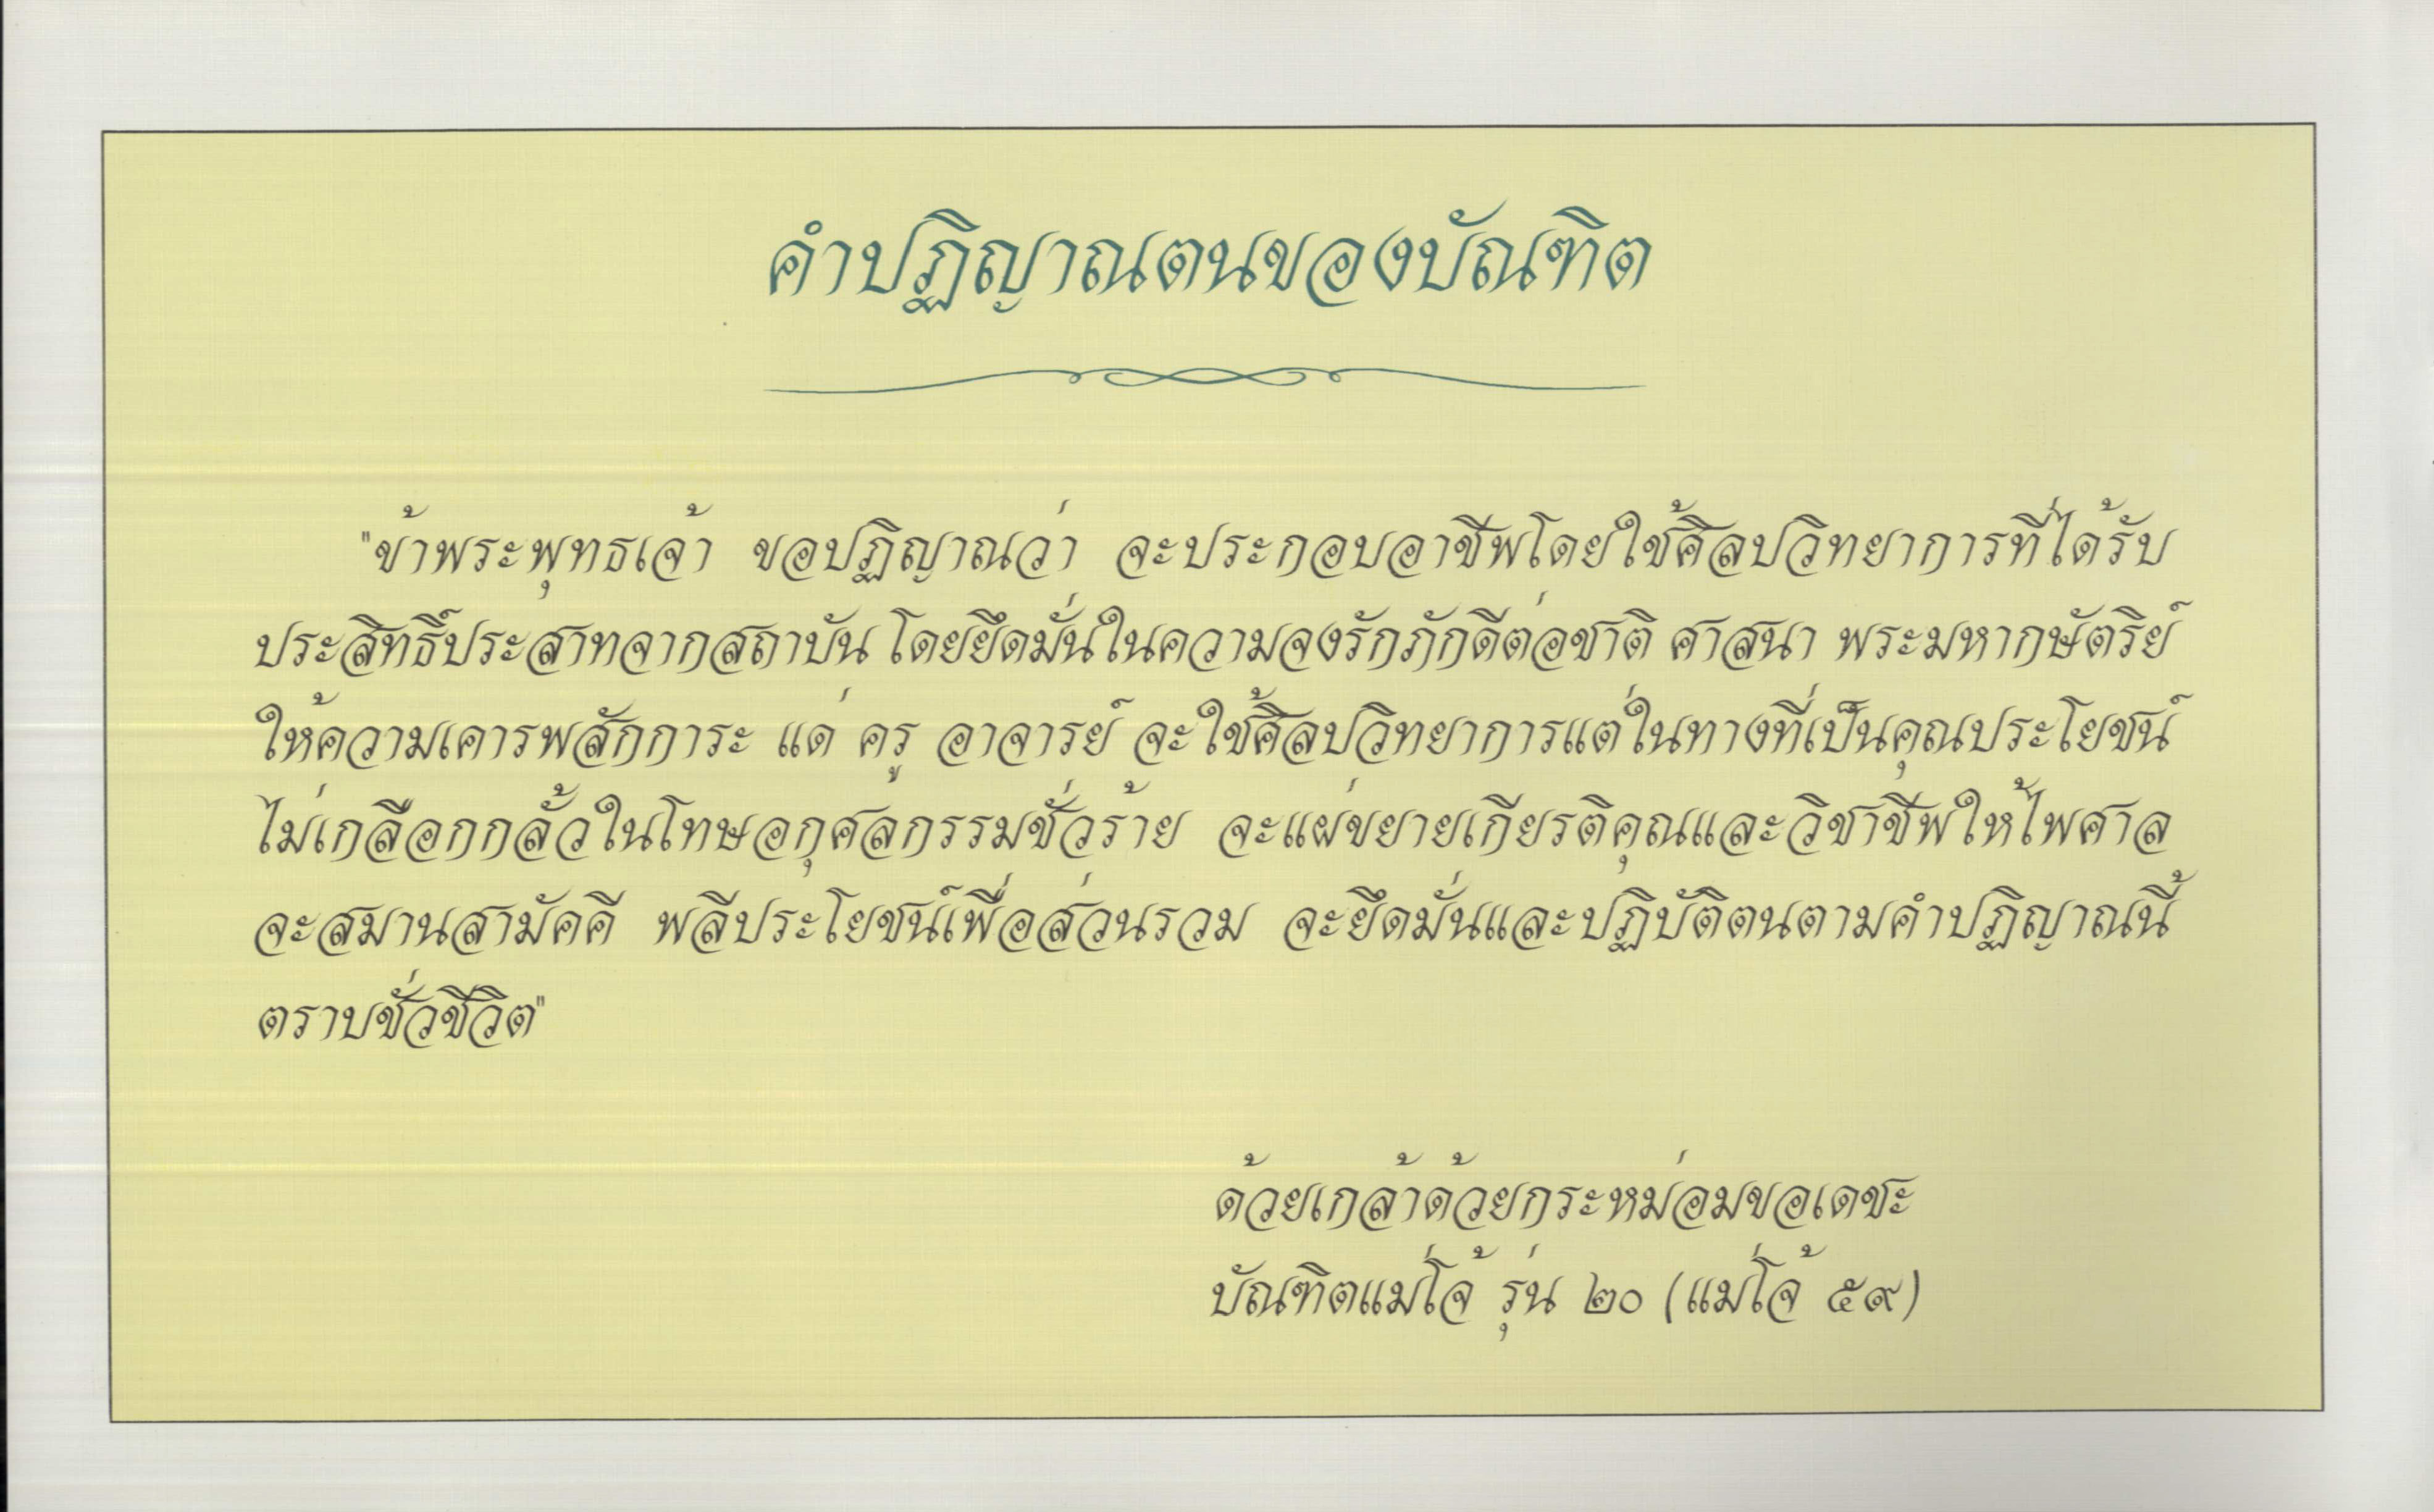 คำปฏิญาณตนของบัณฑิต
"ข้าพระพุทธเจ้า ขอปฏิญาณว่า จะประกอบอาชีพโดยใช้ศิลปวิทยาการที่ได้รับ
ประสิทธิ์ประสาทจากสถาบัน โดยยึดมั่นในความจงรักภักดีต่อชาติ ศาสนา พระมหากษัตริย์
ให้ความเคารพสักการะ แด่ ครู อาจารย์ จะใช้ศิลปวิทยาการแต่ในทางที่เป็นคุณประโยชน์
ไม่เกลือกกลั้วในโทษอกุศลกรรมชั่วร้าย จะแผ่ขยายเกียรติคุณและวิชาชีพให้ไพศาล
จะสมานสามัคคี พลีประโยชน์เพื่อส่วนรวม จะยึดมั่นและปฏิบัติตนตามคำปฏิญาณนี้
ตราบชั่วชีวิต"
ด้วยเกล้าด้วยกระหม่อมขอเดชะ
บัณฑิตแม่โจ้ รุ่น ๒๐ (แม่โจ้ ๕๙)